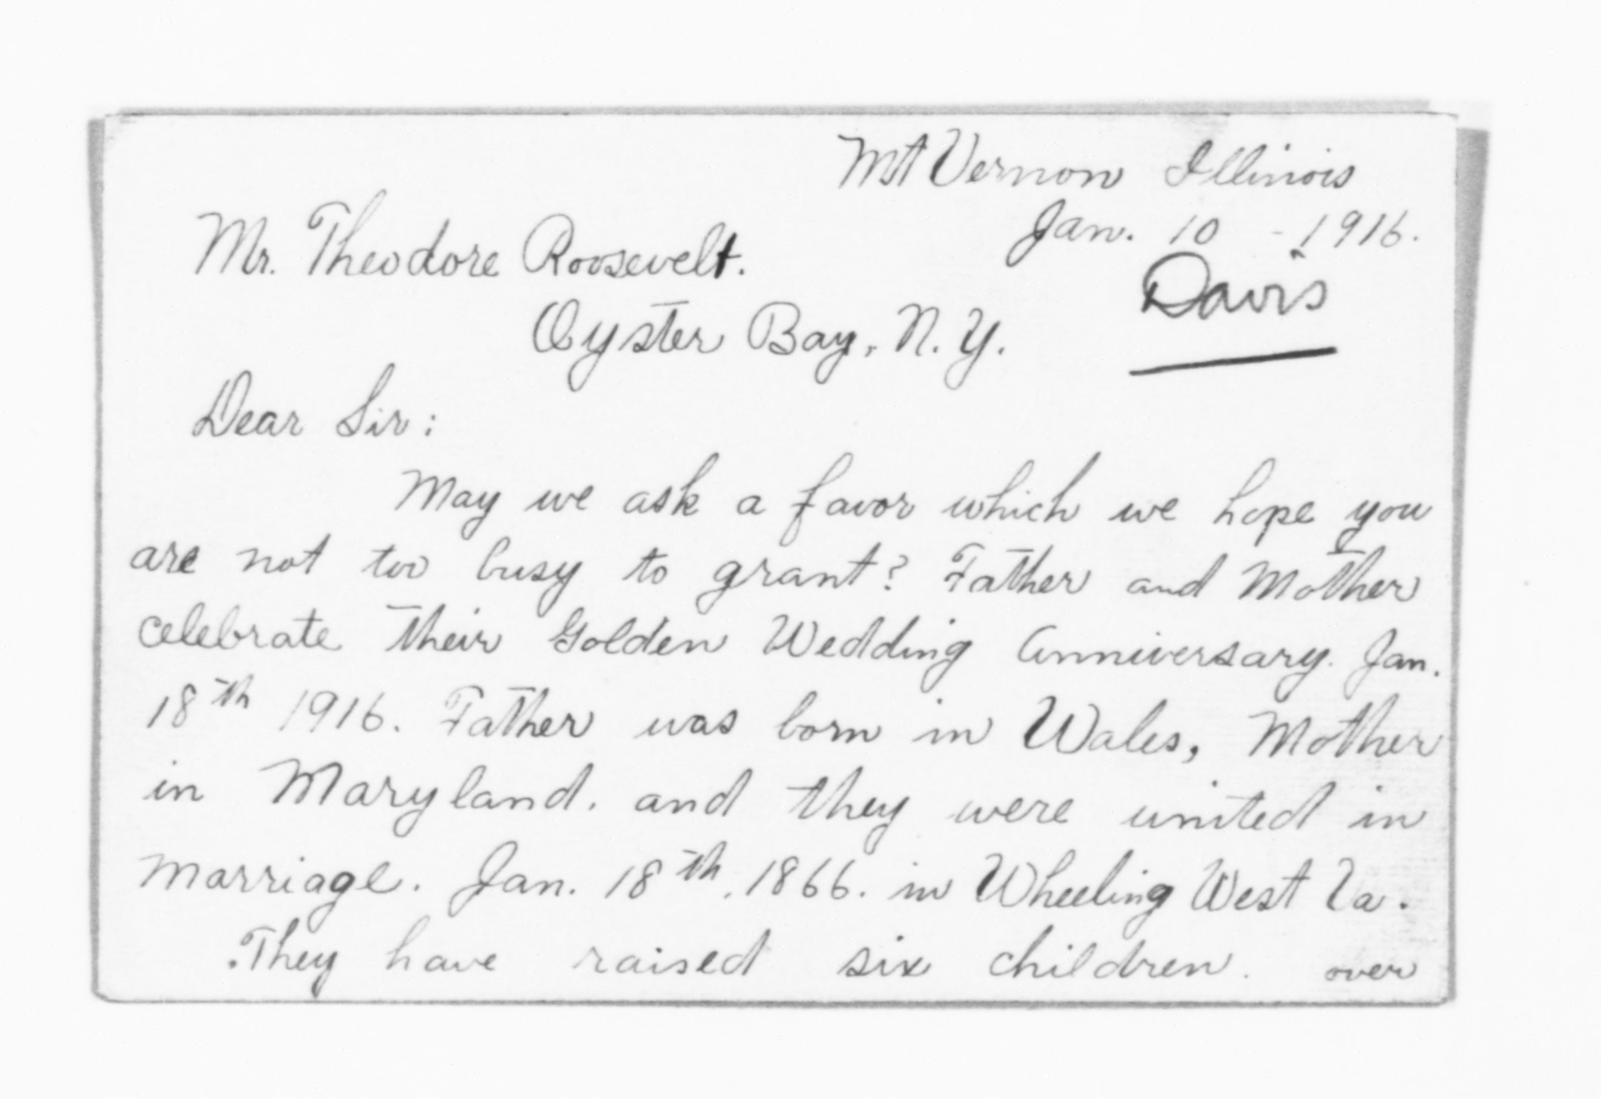 Mt Vernon Illinois
Jan. 10 - 1916.
Davis
Mr. Theodore Roosevelt.
Oyster Bay, N. Y.
Dear Sir:
May we ask a favor which we hope you
are not too busy to grant? Father and Mother
celebrate their Golden Wedding Anniversary. Jan.
18th 1916. Father was born in Wales, Mother
in Maryland. and they were united in
marriage. Jan. 18th. 1866. in Wheeling West Va.
They have raised six children. over